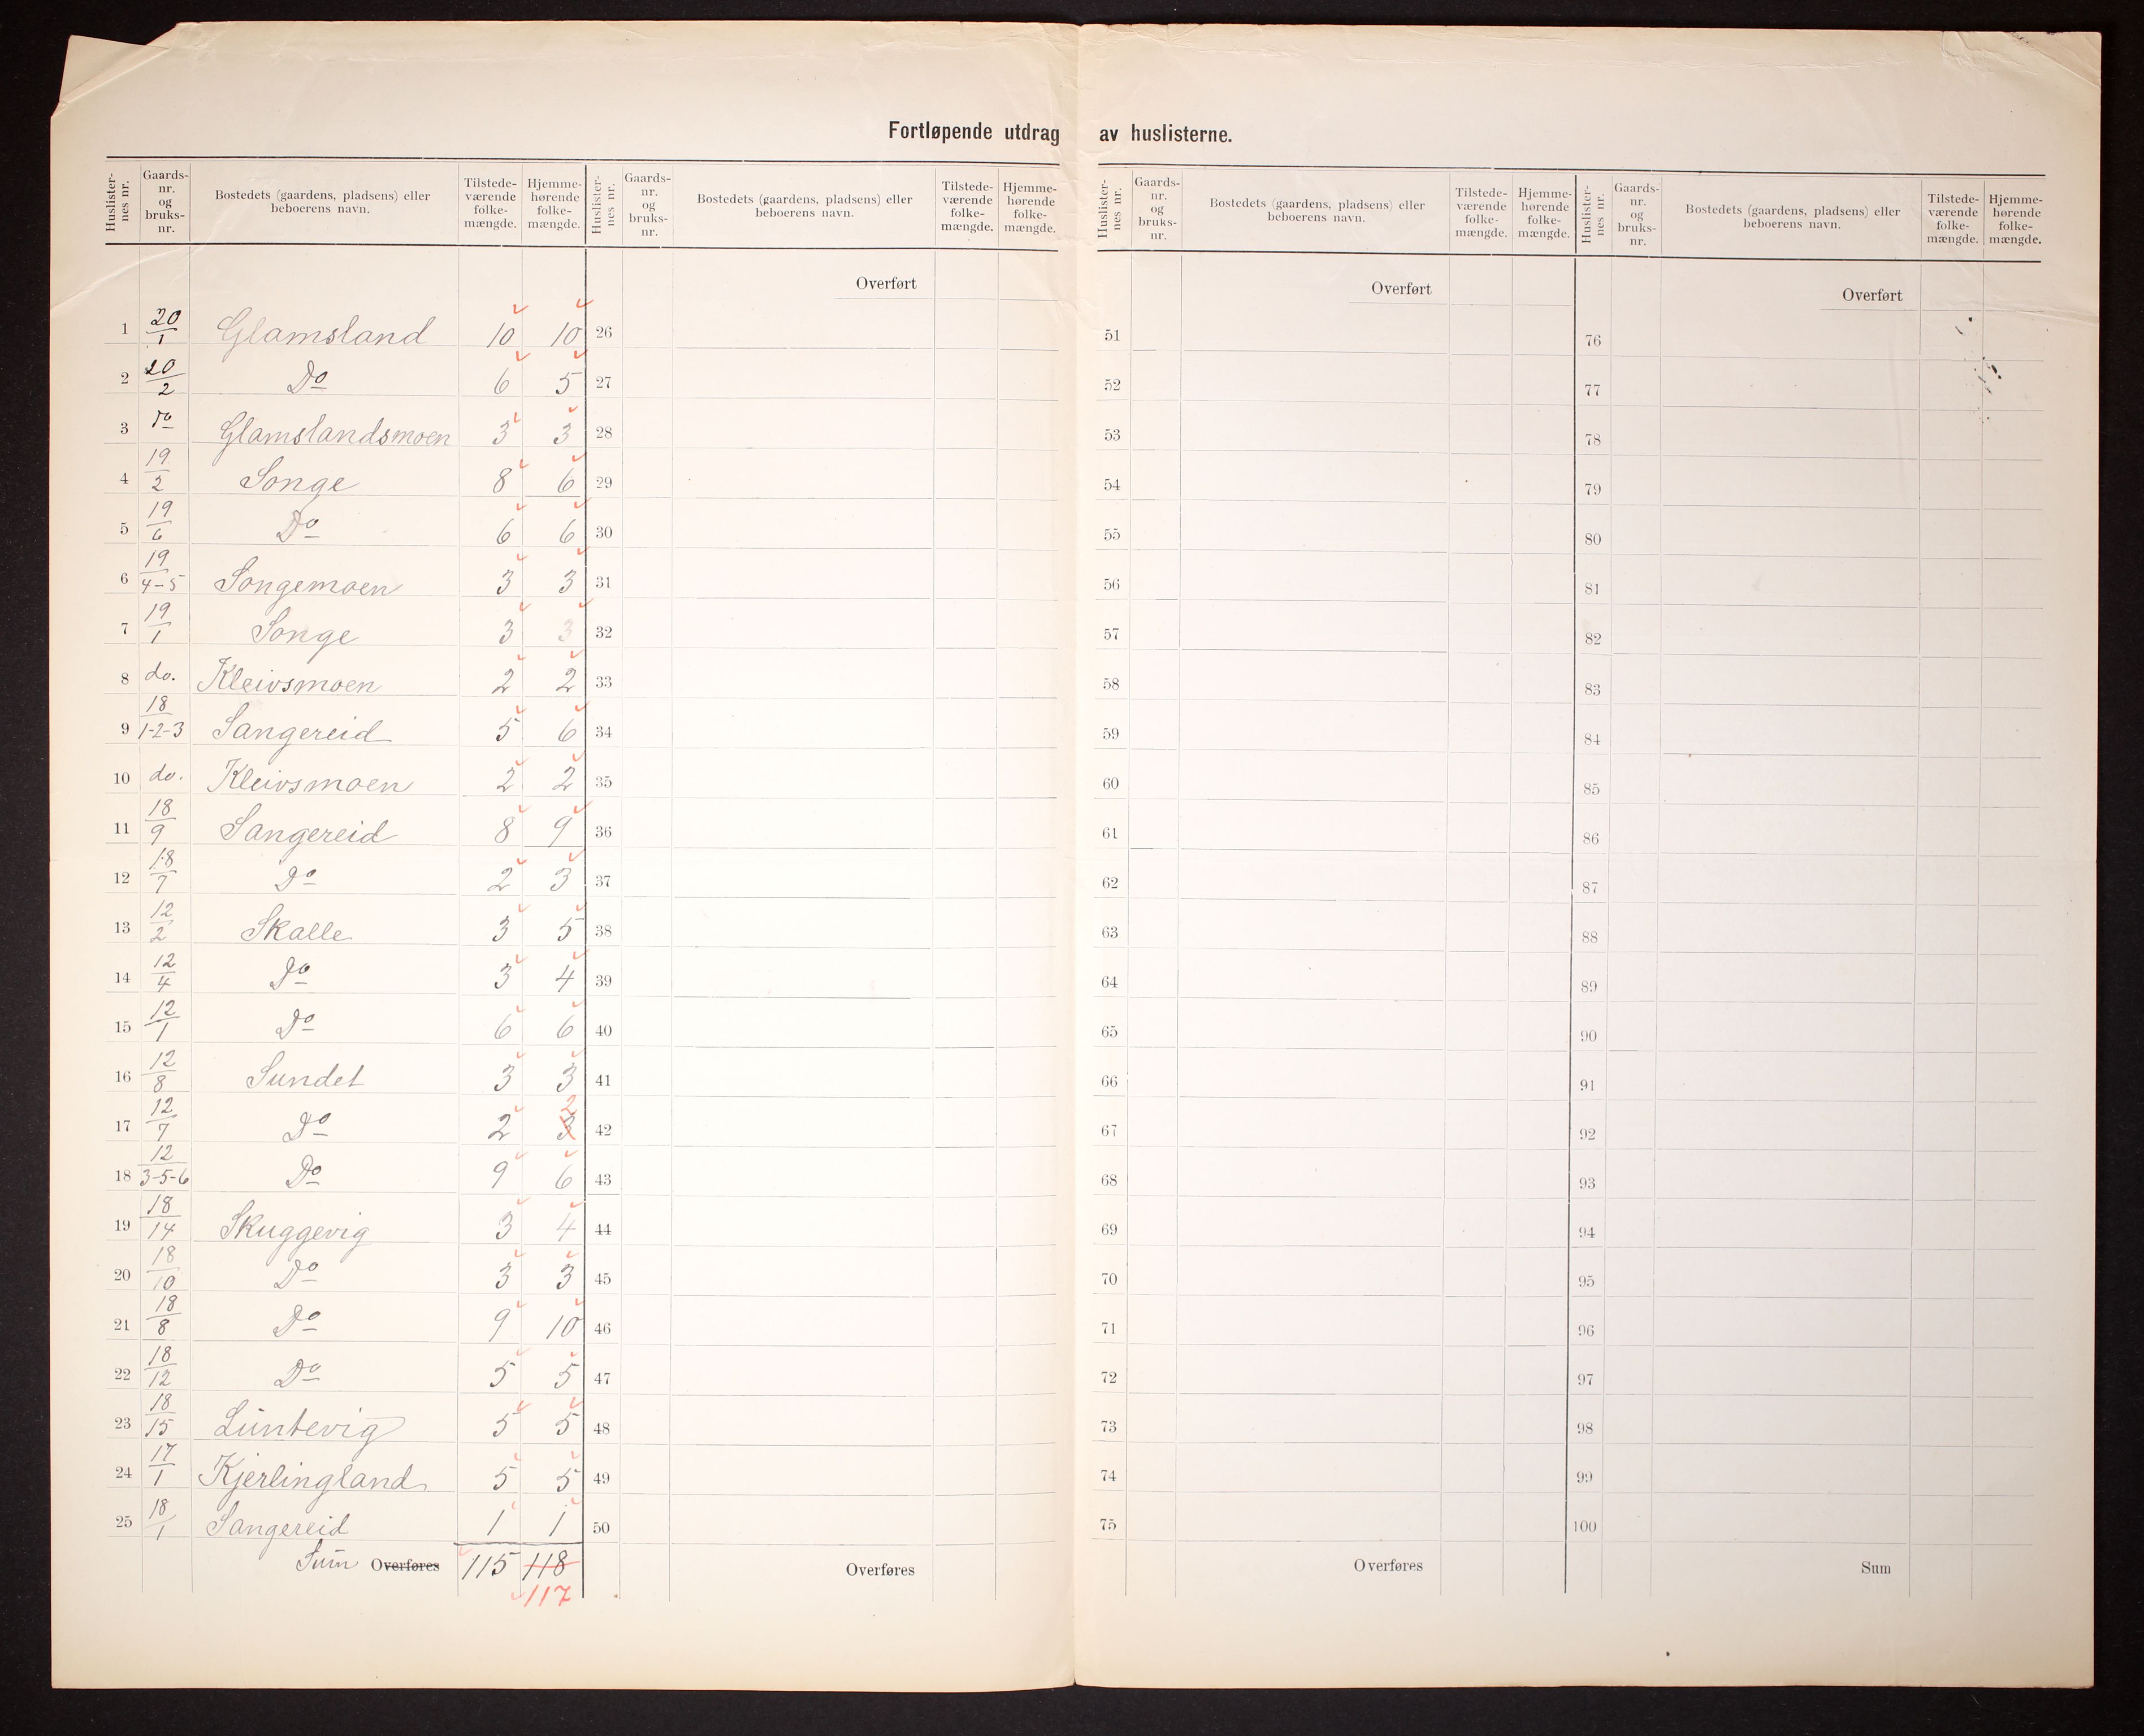 Fortløpende utdrag av huslisterne.
Huslisternes nr. Gaardsnr. og bruksnr. Bostedets (gaardens, pladsens) eller beboerens navn. Tilstedeværende folkemængde. Hjemmehørende folkemængde. Huslisternes nr. Gaardsnr. og bruksnr. Bostedets (gaardens, pladsens) eller beboerens navn. Tilstedeværende folkemængde. Hjemmehørende folkemængde. Huslisternes nr. Gaardsnr. og bruksnr. Bostedets (gaardens, pladsens) eller beboerens navn. Tilstedeværende folkemængde. Hjemmehørende folkemængde. Huslisternes nr. Gaardsnr. og bruksnr. Bostedets (gaardens, pladsens) eller beboerens navn. Tilstedeværende folkemængde. Hjemmehørende folkemængde.
Overført Overført Overført
1 20/1 Glamsland 10 10 26 51 76
2 20/2 Do 6 5 27 52 77
3 Do Glamslandsmoen 3 3 28 53 78
4 19/2 Songe 8 6 29 54 79
5 19/6 Do 6 6 30 55 80
6 19/4-5 Songemoen 3 3 31 56 81
7 19/1 Songe 3 3 32 57 82
8 do. Kleivsmoen 2 2 33 58 83
9 18/1-2-3 Sangereid 5 6 34 59 84
10 do. Kleivsmoen 2 2 35 60 85
11 18/9 Sangereid 8 9 36 61 86
12 18/7 Do 2 3 37 62 87
13 12/2 Skalle 3 5 38 63 88
14 12/4 Do 3 4 39 64 89
15 12/1 Do 6 6 40 65 90
16 12/8 Sundet 3 3 41 66 91
17 12/7 Do 2 3 2 42 67 92
18 12/3-5-6 Do 9 6 43 68 93
19 18/14 Skuggevig 3 4 44 69 94
20 18/10 Do 3 3 45 70 95
21 18/8 Do 9 10 46 71 96
22 18/12 Do 5 5 47 72 97
23 18/15 Luntevig 5 5 48 73 98
24 17/1 Kjerlingland 5 5 49 74 99
25 18/1 Sangereid 1 1 50 75 100
Sum Overføres 115 118 Overføres Overføres Sum
117